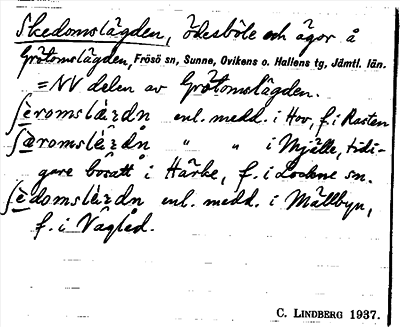 Skedomslägden, ödesböle och ägor å
Grötomslägden, Frösö sn, Sunne, Ovikens o. Hallens tg, Jämtl. län.
= NV delen av Grötomslägden.
ʃèromslɛ́rdn enl. medd. i Hov, f. i Rasten
ʃæ̀romslɛ́rdn̥ " " i Mjälle, tidi-
gare bosatt i Härke, f. i Lockne sn.
ʃèdomslɛ́rdn enl. medd. i Mällbyn,
f. i Vagled.
C. LINDBERG 1937.